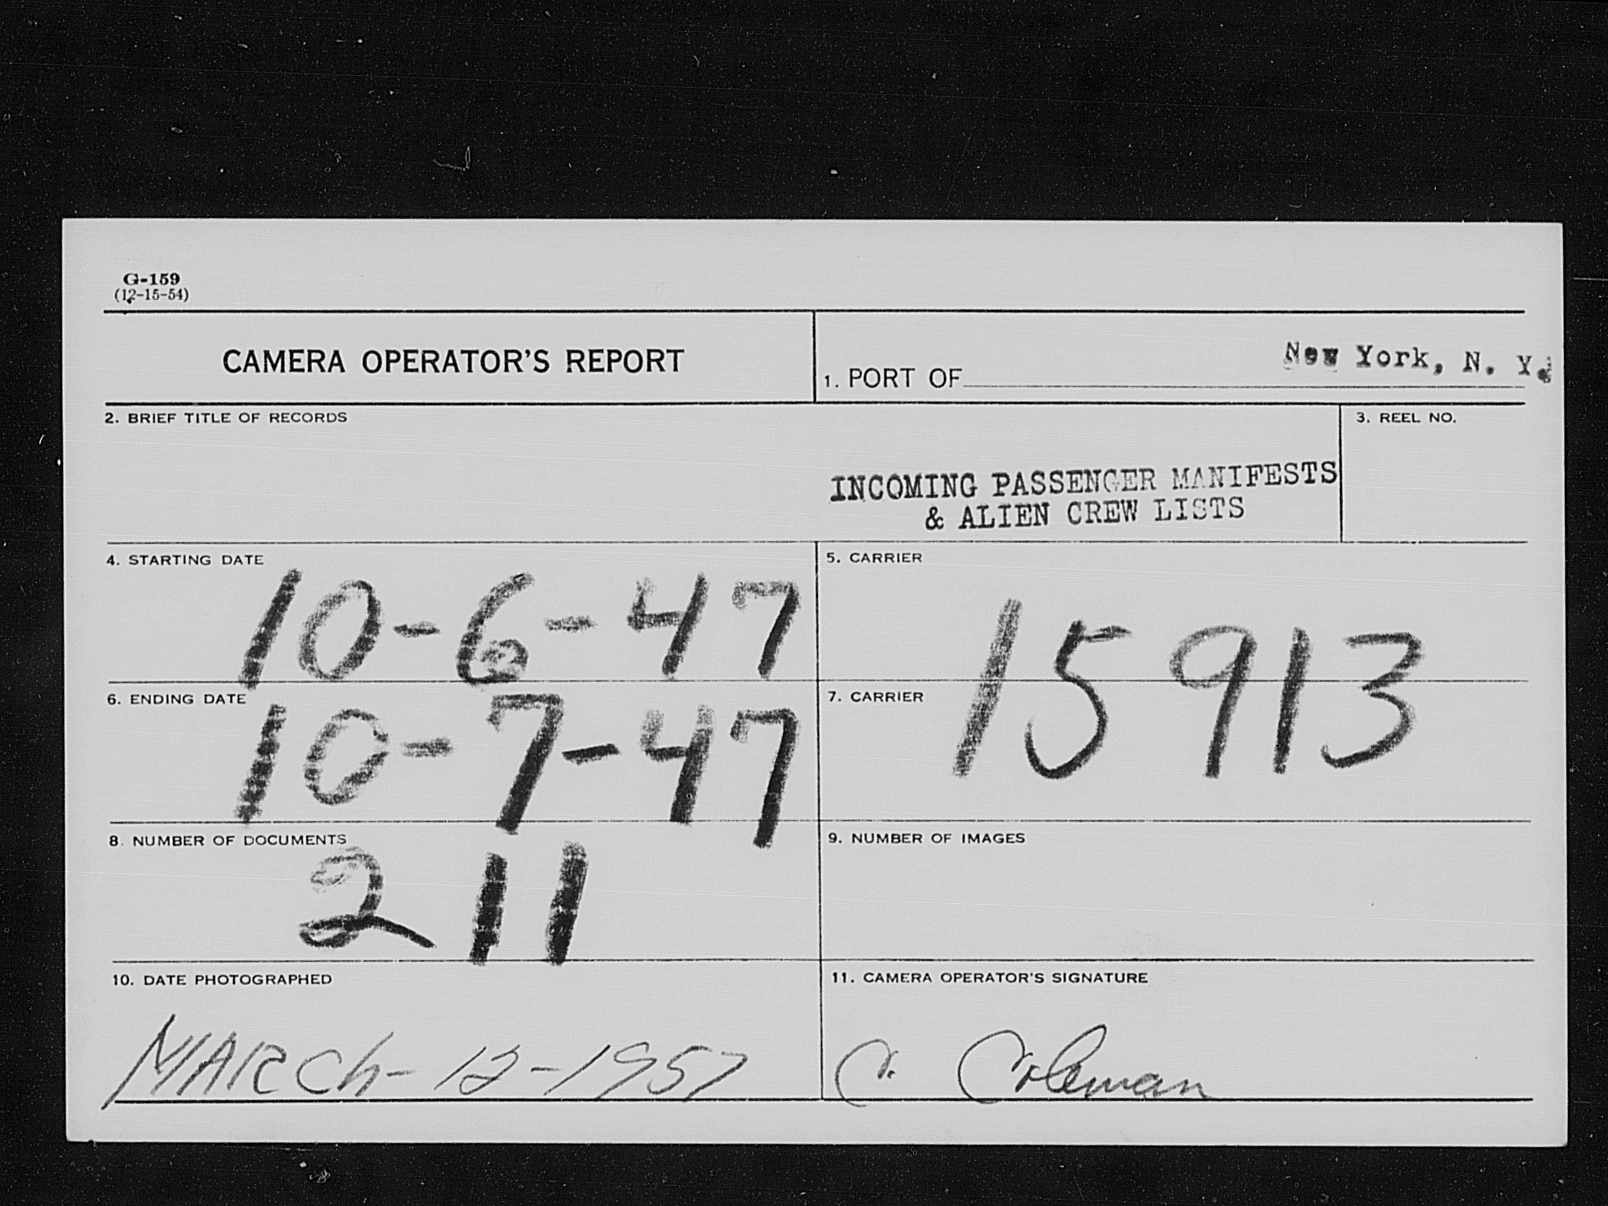 G-159
(12-15-54)
CAMERA OPERATOR'S REPORT
1. PORT OF New York, N. Y.
2. BRIEF TITLE OF RECORDS
3. REEL NO.
INCOMING PASSENGER MANIFESTS
& ALIEN CREW LISTS
4. STARTING DATE
10-6-47
5. CARRIER
15913
6. ENDING DATE
10-7-47
7. CARRIER
8. NUMBER OF DOCUMENTS
211
9. NUMBER OF IMAGES
10. DATE PHOTOGRAPHED
MARCh-12-1957
11. CAMERA OPERATOR'S SIGNATURE
C. Coleman